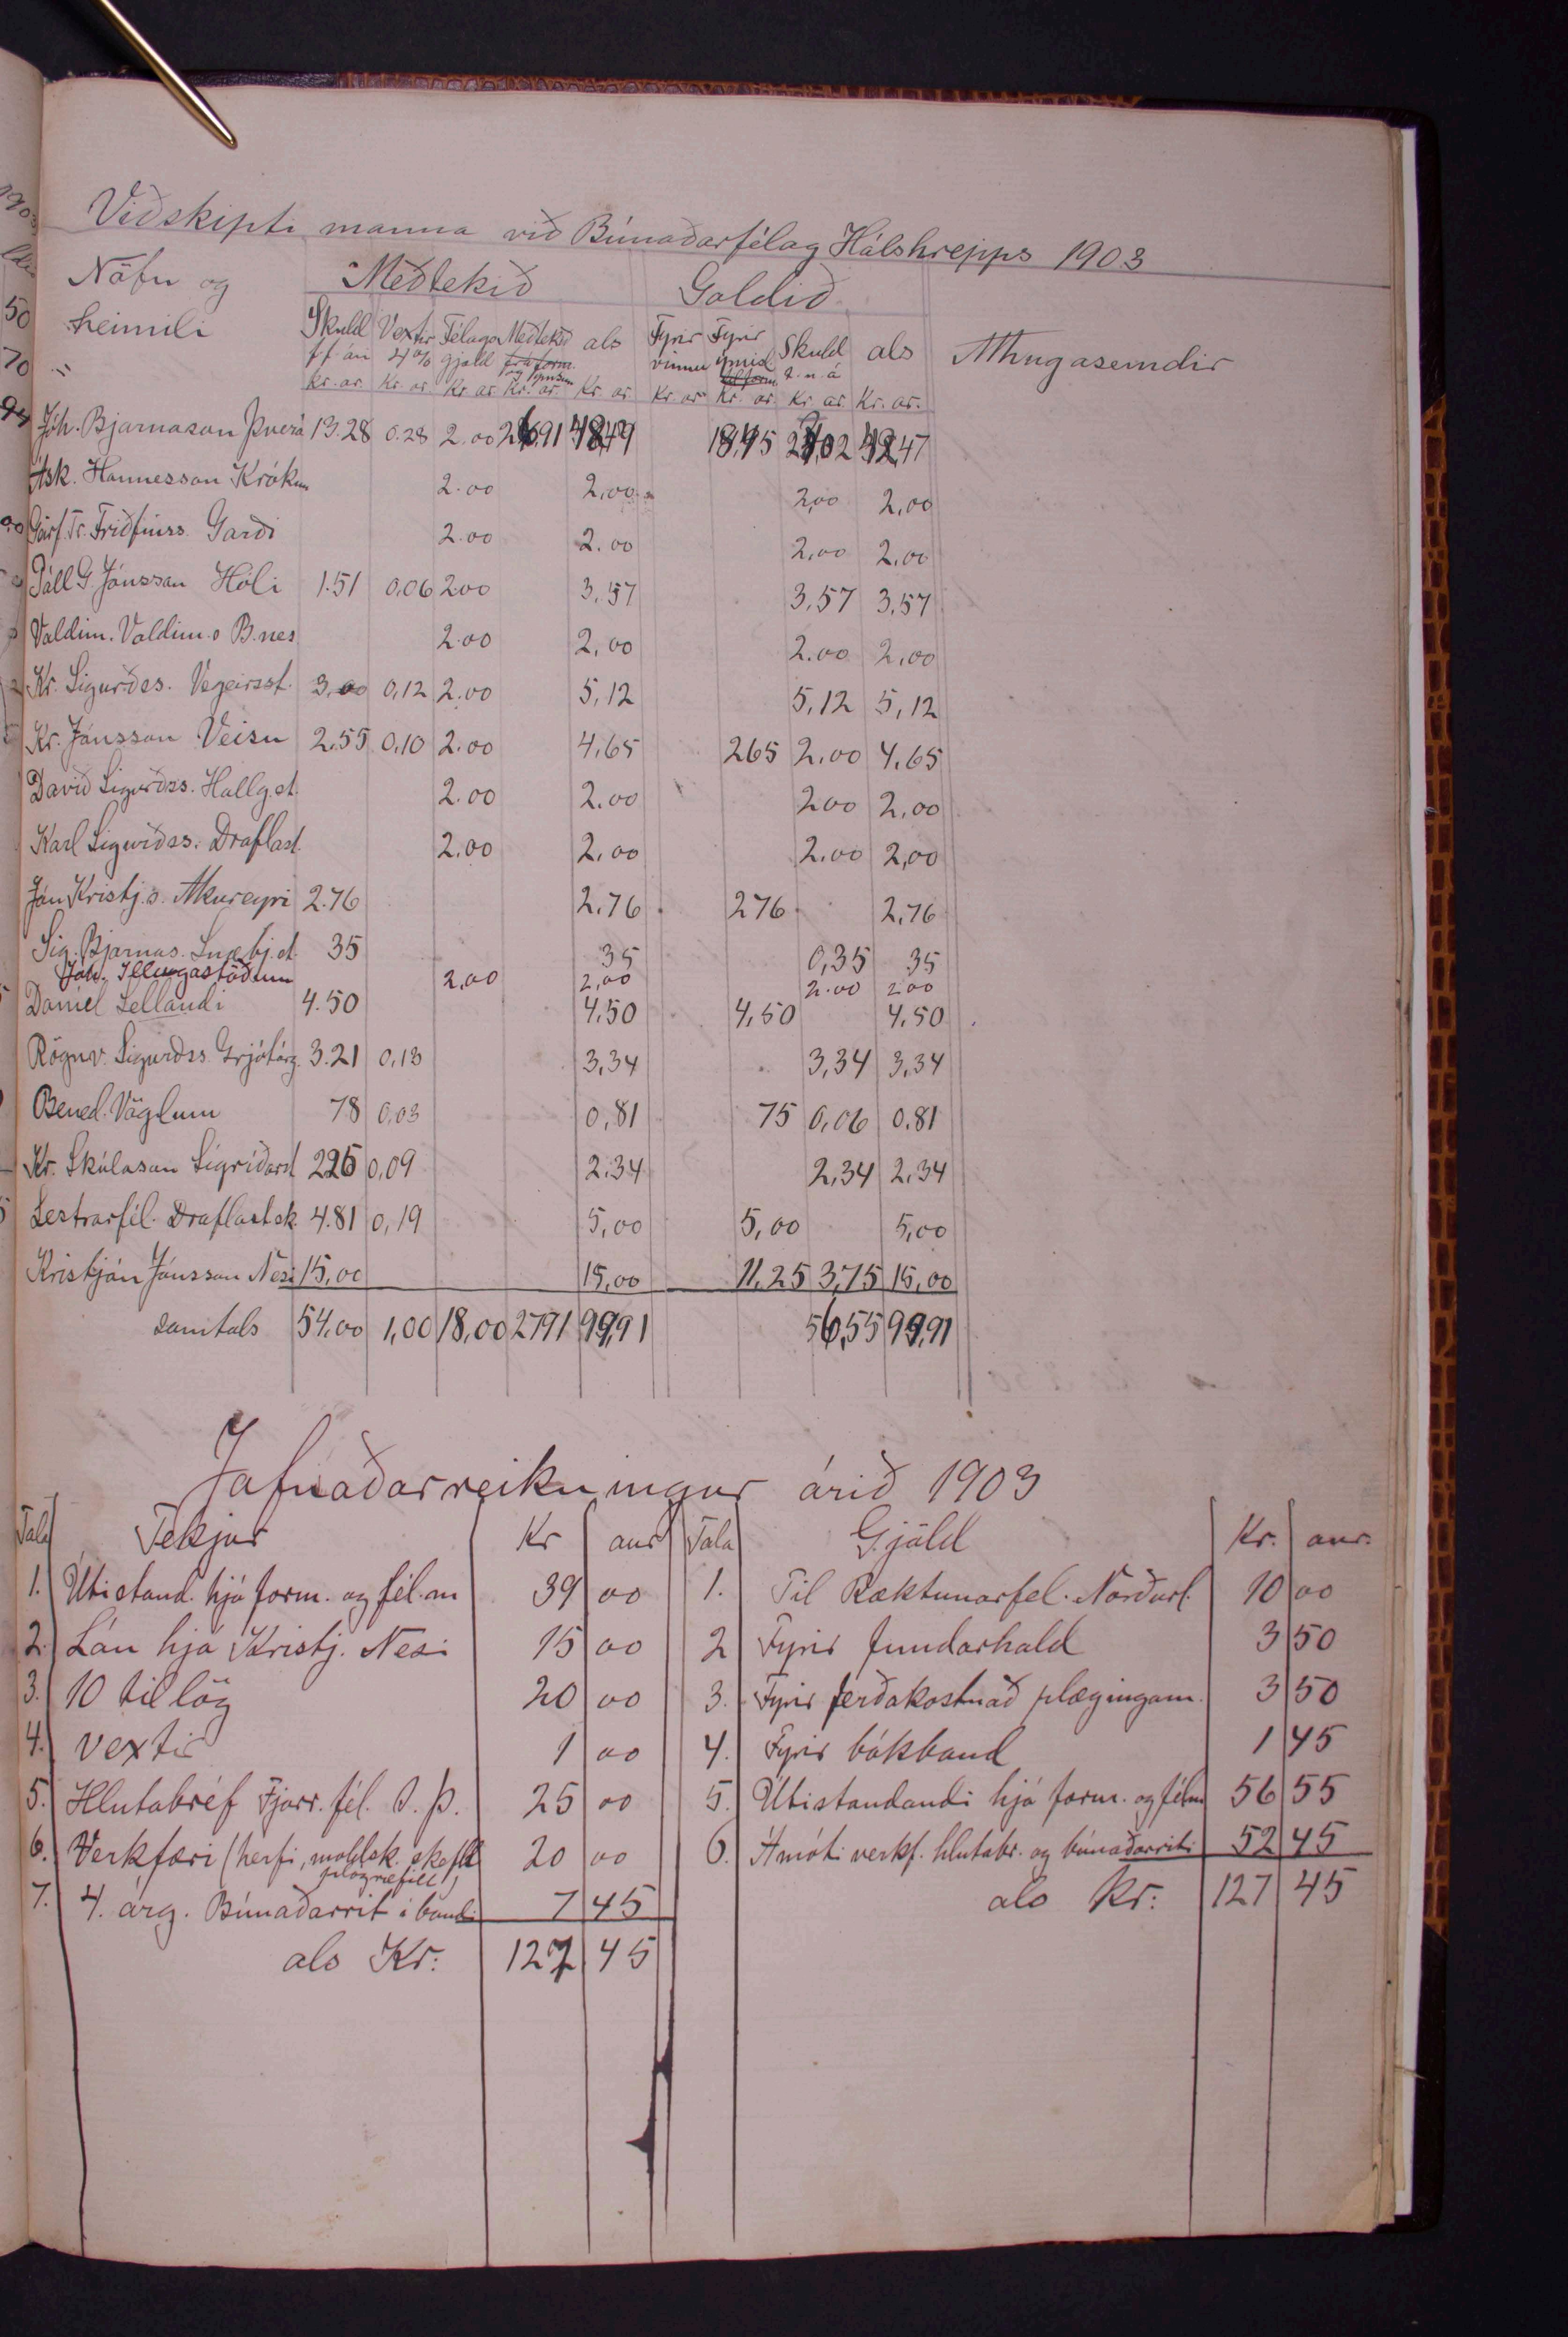 Viðskipti manna við Búnaðarfélag Hálshrepps 1903
Nöfn og heimili Meðtekið Goldið Athugasemdir
Skuld f.f. ári Vextir 4% Félags gjald Meðtekið als Fyrir vinnu Fyrir ýmisl. Skuld t. n. á als
kr. ar. kr. ar. kr. ar. kr. ar. kr. ar. kr. ar. kr. ar. kr. ar. kr. ar.
Jóh. Bjarnason Þverá 13.28 0.28 2.00 26,91 18,45
Ásk. Hannesson Krókum 2.00 2,00 2,00 2,00
Garði 2.00 2.00 2,00 2,00
Páll G Jónsson Hóli 1.51 0,06 200 3,57 3,57 3,57
Valdim. Valdim.s B.nes 2.00 2,00 2.00 2,00
Kr. Sigurðss. Végeirsst. 3,00 0,12 2.00 5,12 5,12 5,12
Kr. Jónsson Veisu 2.55 0,10 2.00 4,65 265 2,00 4,65
Davíð Sigurðss. Hallg.st. 2.00 2.00 200 2,00
Karl Sigurðss. Draflast. 2.00 2,00 2.00 2,00
Jón Kristj.s. Akureyri 2.76 2,76 276 2,76
Sig. Bjarnas. Snæbj.st. 35 35 0,35 35
Jóh. Illugastöðum 2,00 2,00 2.00 200
Daníel Sellandi 4.50 4,50 4,50 4,50
Rögnv. Sigurðss. Grjótárg. 3.21 0,13 3,34 3,34 3,34
Bened. Vöglum 78 0,03 0,81 75 0,06 0.81
Kr. Skúlason Sigríðarst 225 0,09 2.34 2,34 2,34
Lestrarfél. Draflast.sk. 4.81 0,19 5,00 5,00 5,00
Kristján Jónsson Nesi 15,00 15,00 11,25 3,75 15,00
samtals 54,00 1,00 18,00 2791 99,91 56,55 99,91
Jafnaðarreikningur árið 1903
Tala Tekjur Kr aur Tala Gjöld Kr. aur.
1. Útistand. hjá form. og fél.m 39 00 1. Til Ræktunarfel. Norðurl. 10 00
2. Lán hjá Kristj. Nesi 15 00 2 Fyrir fundarhald 3 50
3. 10 tillög 20 00 3. Fyrir ferðakostnað plægingam. 3 50
4. vextir 1 00 4. Fyrir bókband 1 45
5. Hlutabréf Fjárr. fél. S. Þ. 25 00 5. Útistandandi hjá form. og félm 56 55
6. Verkfæri (herfi, moldsk. 20 00 6. Ámóti verkf. hlutabr. og búnaðarriti 52 45
7. 4. árg. Búnaðarrit í bandi 7 45 als kr: 127 45
als Kr: 127 45